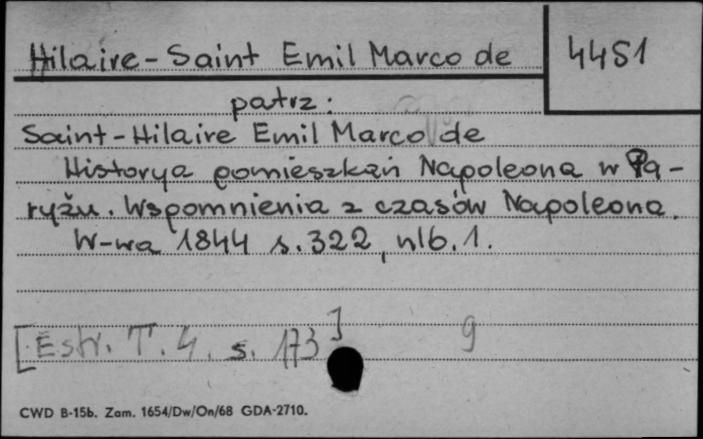 Hilaire-Saint Emil Marco de
4451
patrz:
Saint-Hilaire Emil Marco de
Historya pomieszkań Napoleona w Pa-
ryżu. Wspomnienia z czasów Napoleona.
W-wa 1844 s. 322, nlb. 1.
[Estr. T. 4. s. 173]
g
CWD B-15b. Zam. 1654/Dw/On/68 GDA-2710.